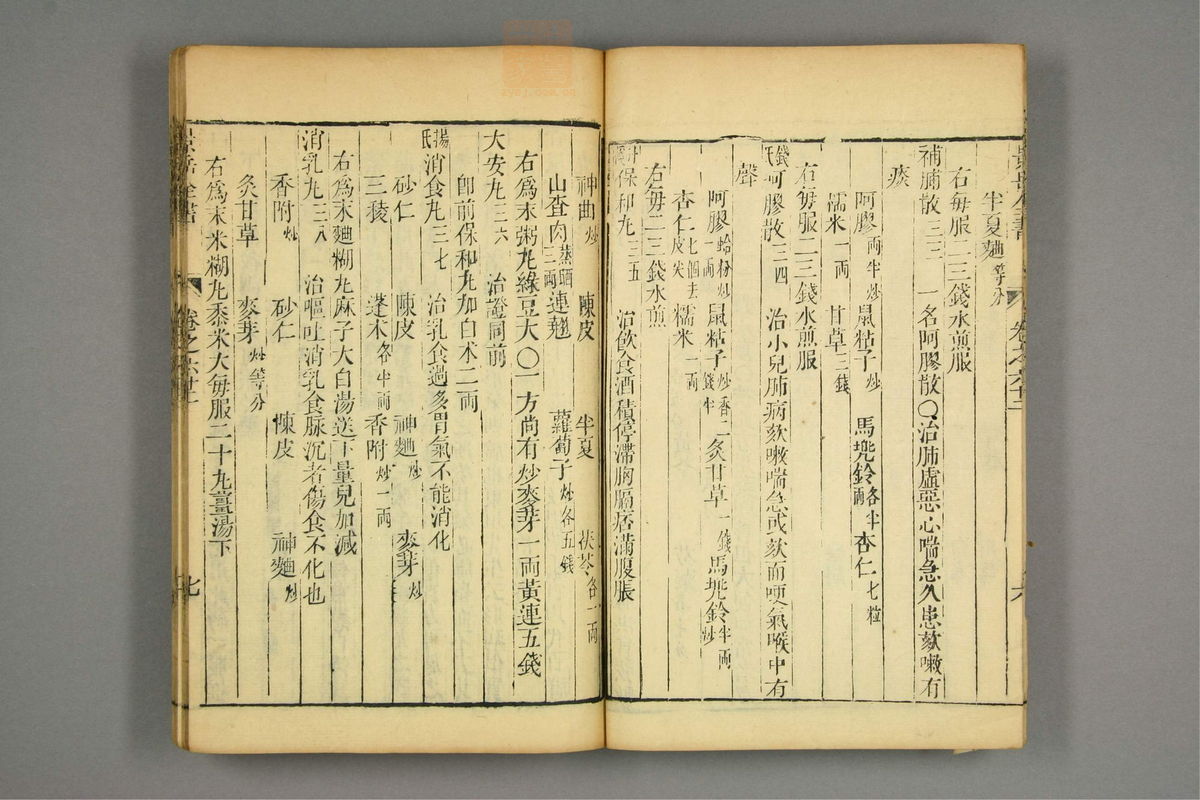 半夏麯等分
右每服二三錢水煎服
補肺散三三　一名阿膠散〇治肺虛惡心喘急久患欬嗽有
痰
阿膠兩半炒　鼠粘子炒　馬兜鈴各半兩　杏仁七粒
糯米一兩　甘草三錢
右每服二三錢水煎服
錢氏阿膠散三四　治小兒肺病欬嗽喘急或欬而哽氣喉中有
聲
阿膠一兩蛤粉炒　鼠粘子炒香二錢半　炙甘草一錢　馬兜鈴半兩炒
杏仁七個去皮尖　糯米一兩
右每二三錢水煎
保和丸三五　治飲食酒積停滯胸膈痞滿腹脹
神曲炒　陳皮　半夏　茯苓各一兩
山查肉三兩蒸晒　連翹　蘿蔔子炒各五錢
右爲末粥丸綠豆大〇一方尚有炒麥芽一兩黃連五錢
大安丸三六　治證同前
卽前保和丸加白术二兩
楊氏消食丸三七　治乳食過多胃氣不能消化
砂仁　陳皮　神麯炒　麥芽炒
三稜　蓬术各半兩　香附炒一兩
右爲末麯糊丸麻子大白湯送下量兒加減
消乳丸三八　治嘔吐消乳食脉沉者傷食不化也
香附炒　砂仁　陳皮　神麯炒
炙甘草　麥芽炒等分
右爲末米糊丸黍米大每服二十丸薑湯下